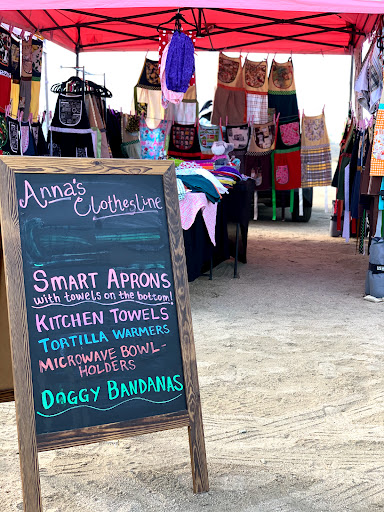 Anna's
Clothesline
SMART APRONS
with towels on the bottom!
KITCHEN TOWELS
TORTILLA WARMERS
MICROWAVE BOWL-
HOLDERS
DOGGY BANDANAS